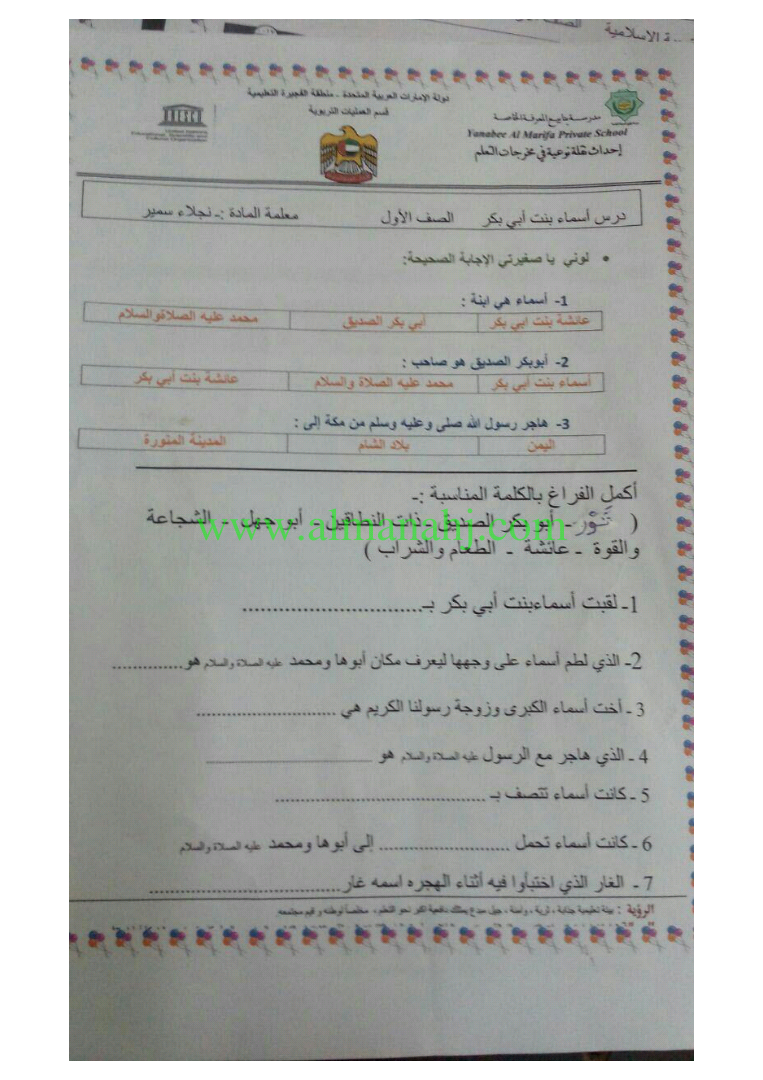 ـة الإسلامية
دولة الإمارات العربية المتحدة - منطقة الفجيرة التعليمية
قسم العمليات التربوية
UNESCO
United Nations
Educational, Scientific and
Cultural Organization
مدرسة ينابيع المعرفة الخاصة
Yanabee Al Marifa Private School
إحداث نقلة نوعية في مخرجات التعلم
درس أسماء بنت أبي بكر الصف الأول معلمة المادة :ـ نجلاء سمير
• لوني يا صغيرتي الإجابة الصحيحة:
1- أسماء هي ابنة :
عائشة بنت ابي بكر أبي بكر الصديق محمد عليه الصلاةوالسلام
2- أبوبكر الصديق هو صاحب :
أسماء بنت أبي بكر محمد عليه الصلاة والسلام عائشة بنت أبي بكر
3- هاجر رسول الله صلى وعليه وسلم من مكة إلى :
اليمن بلاد الشام المدينة المنورة
أكمل الفراغ بالكلمة المناسبة :ـ
( ثَوْر - أبو بكر الصديق - ذات النطاقين - أبو جهل - الشجاعة
www.almanahj.com
والقوة - عائشة - الطعام والشراب )
1ـ لقبت أسماءبنت أبي بكر بـ..............................
2ـ الذي لطم أسماء على وجهها ليعرف مكان أبوها ومحمد عليه الصلاة والسلام هو..............
3 ـ أخت أسماء الكبرى وزوجة رسولنا الكريم هي ...........................
4 ـ الذي هاجر مع الرسول عليه الصلاة والسلام هو ..............................
5 ـ كانت أسماء تتصف بـ ........................................
6 ـ كانت أسماء تحمل ......................... إلى أبوها ومحمد عليه الصلاة والسلام
7 ـ الغار الذي اختبأوا فيه أثناء الهجره اسمه غار....................................
الرؤية : بيئة تعليمية جذابة ، ثرية ، وآمنة ، جيل مبدع يمتلك دافعية أكبر نحو التعلم ، مخلصاً لوطنه و قيم مجتمعه